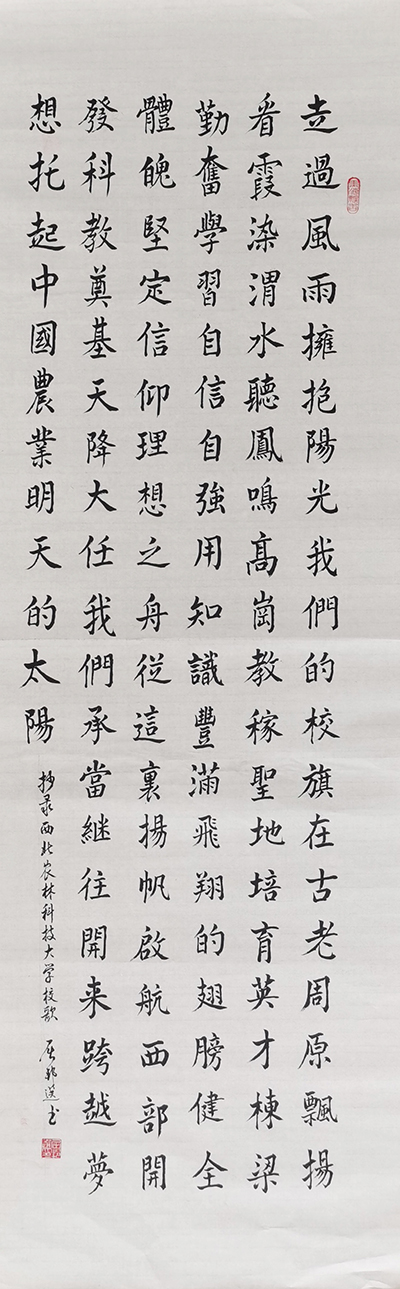 走過風雨擁抱陽光我們的校旗在古老周原飄揚
看霞染渭水聽鳳鳴高崗教稼聖地培育英才棟梁
勤奮學習自信自強用知識豐滿飛翔的翅膀健全
體魄堅定信仰理想之舟從這裏揚帆啟航西部開
發科教奠基天降大任我們承當継往開来跨越夢
想托起中國農業明天的太陽
抄录西北农林科技大学校歌
书